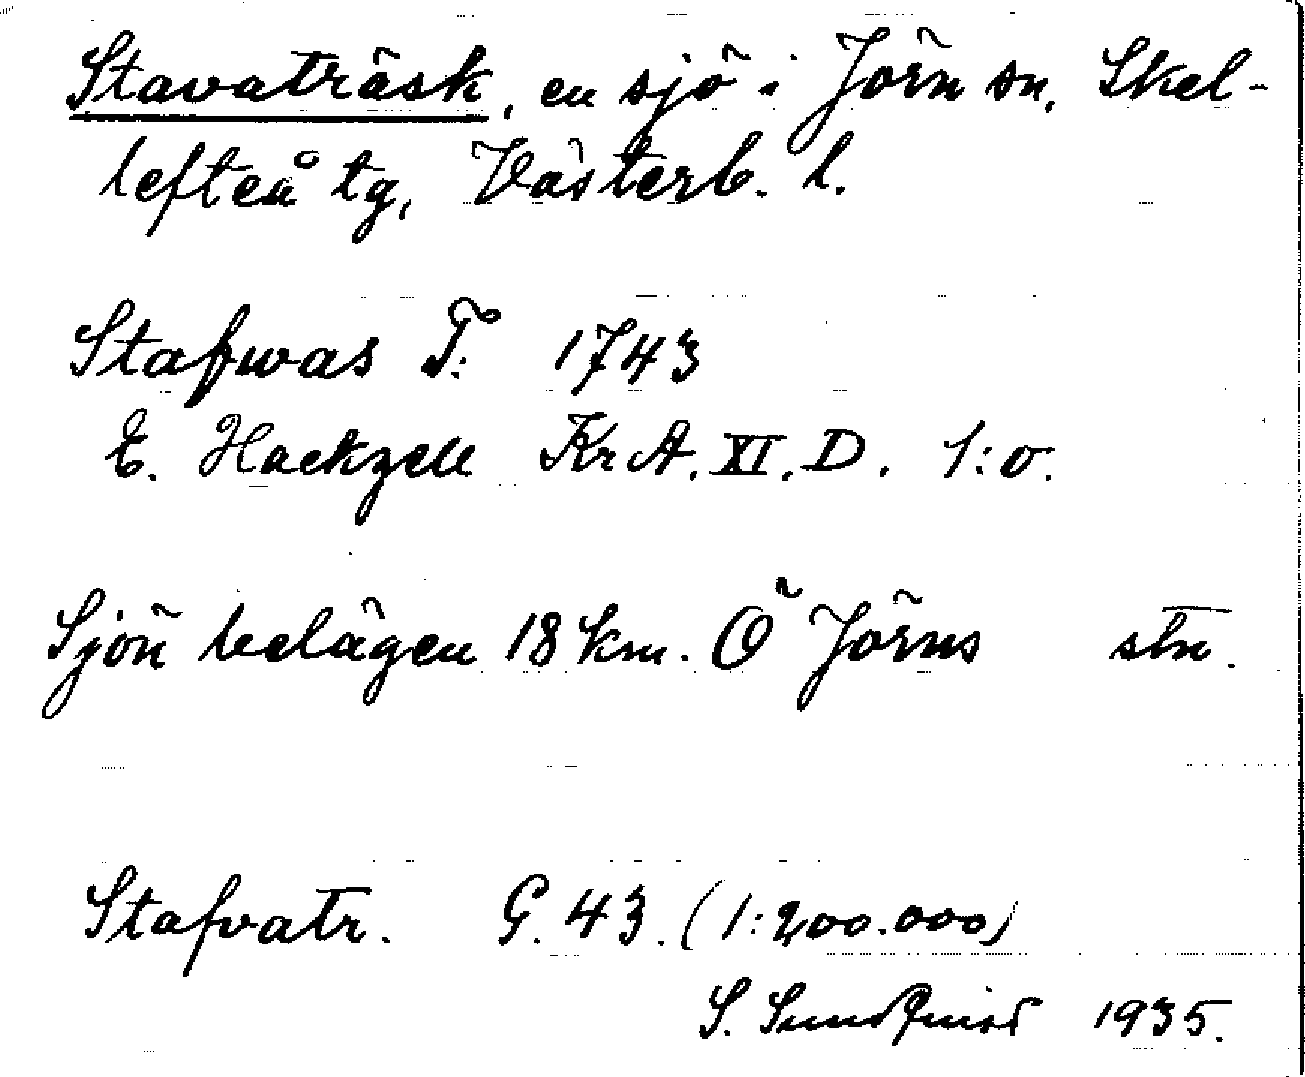 Stavaträsk, en sjö i Jörn sn, Skel-
lefteå tg, Västerb. l.
Stafwas T. 1743
E. Hackzell KrA. XI. D. 1:o.
Sjön belägen 18 km. Ö Jörns stn.
Stafvatr. G. 43. (1:200.000)
S. Sundquist 1935.